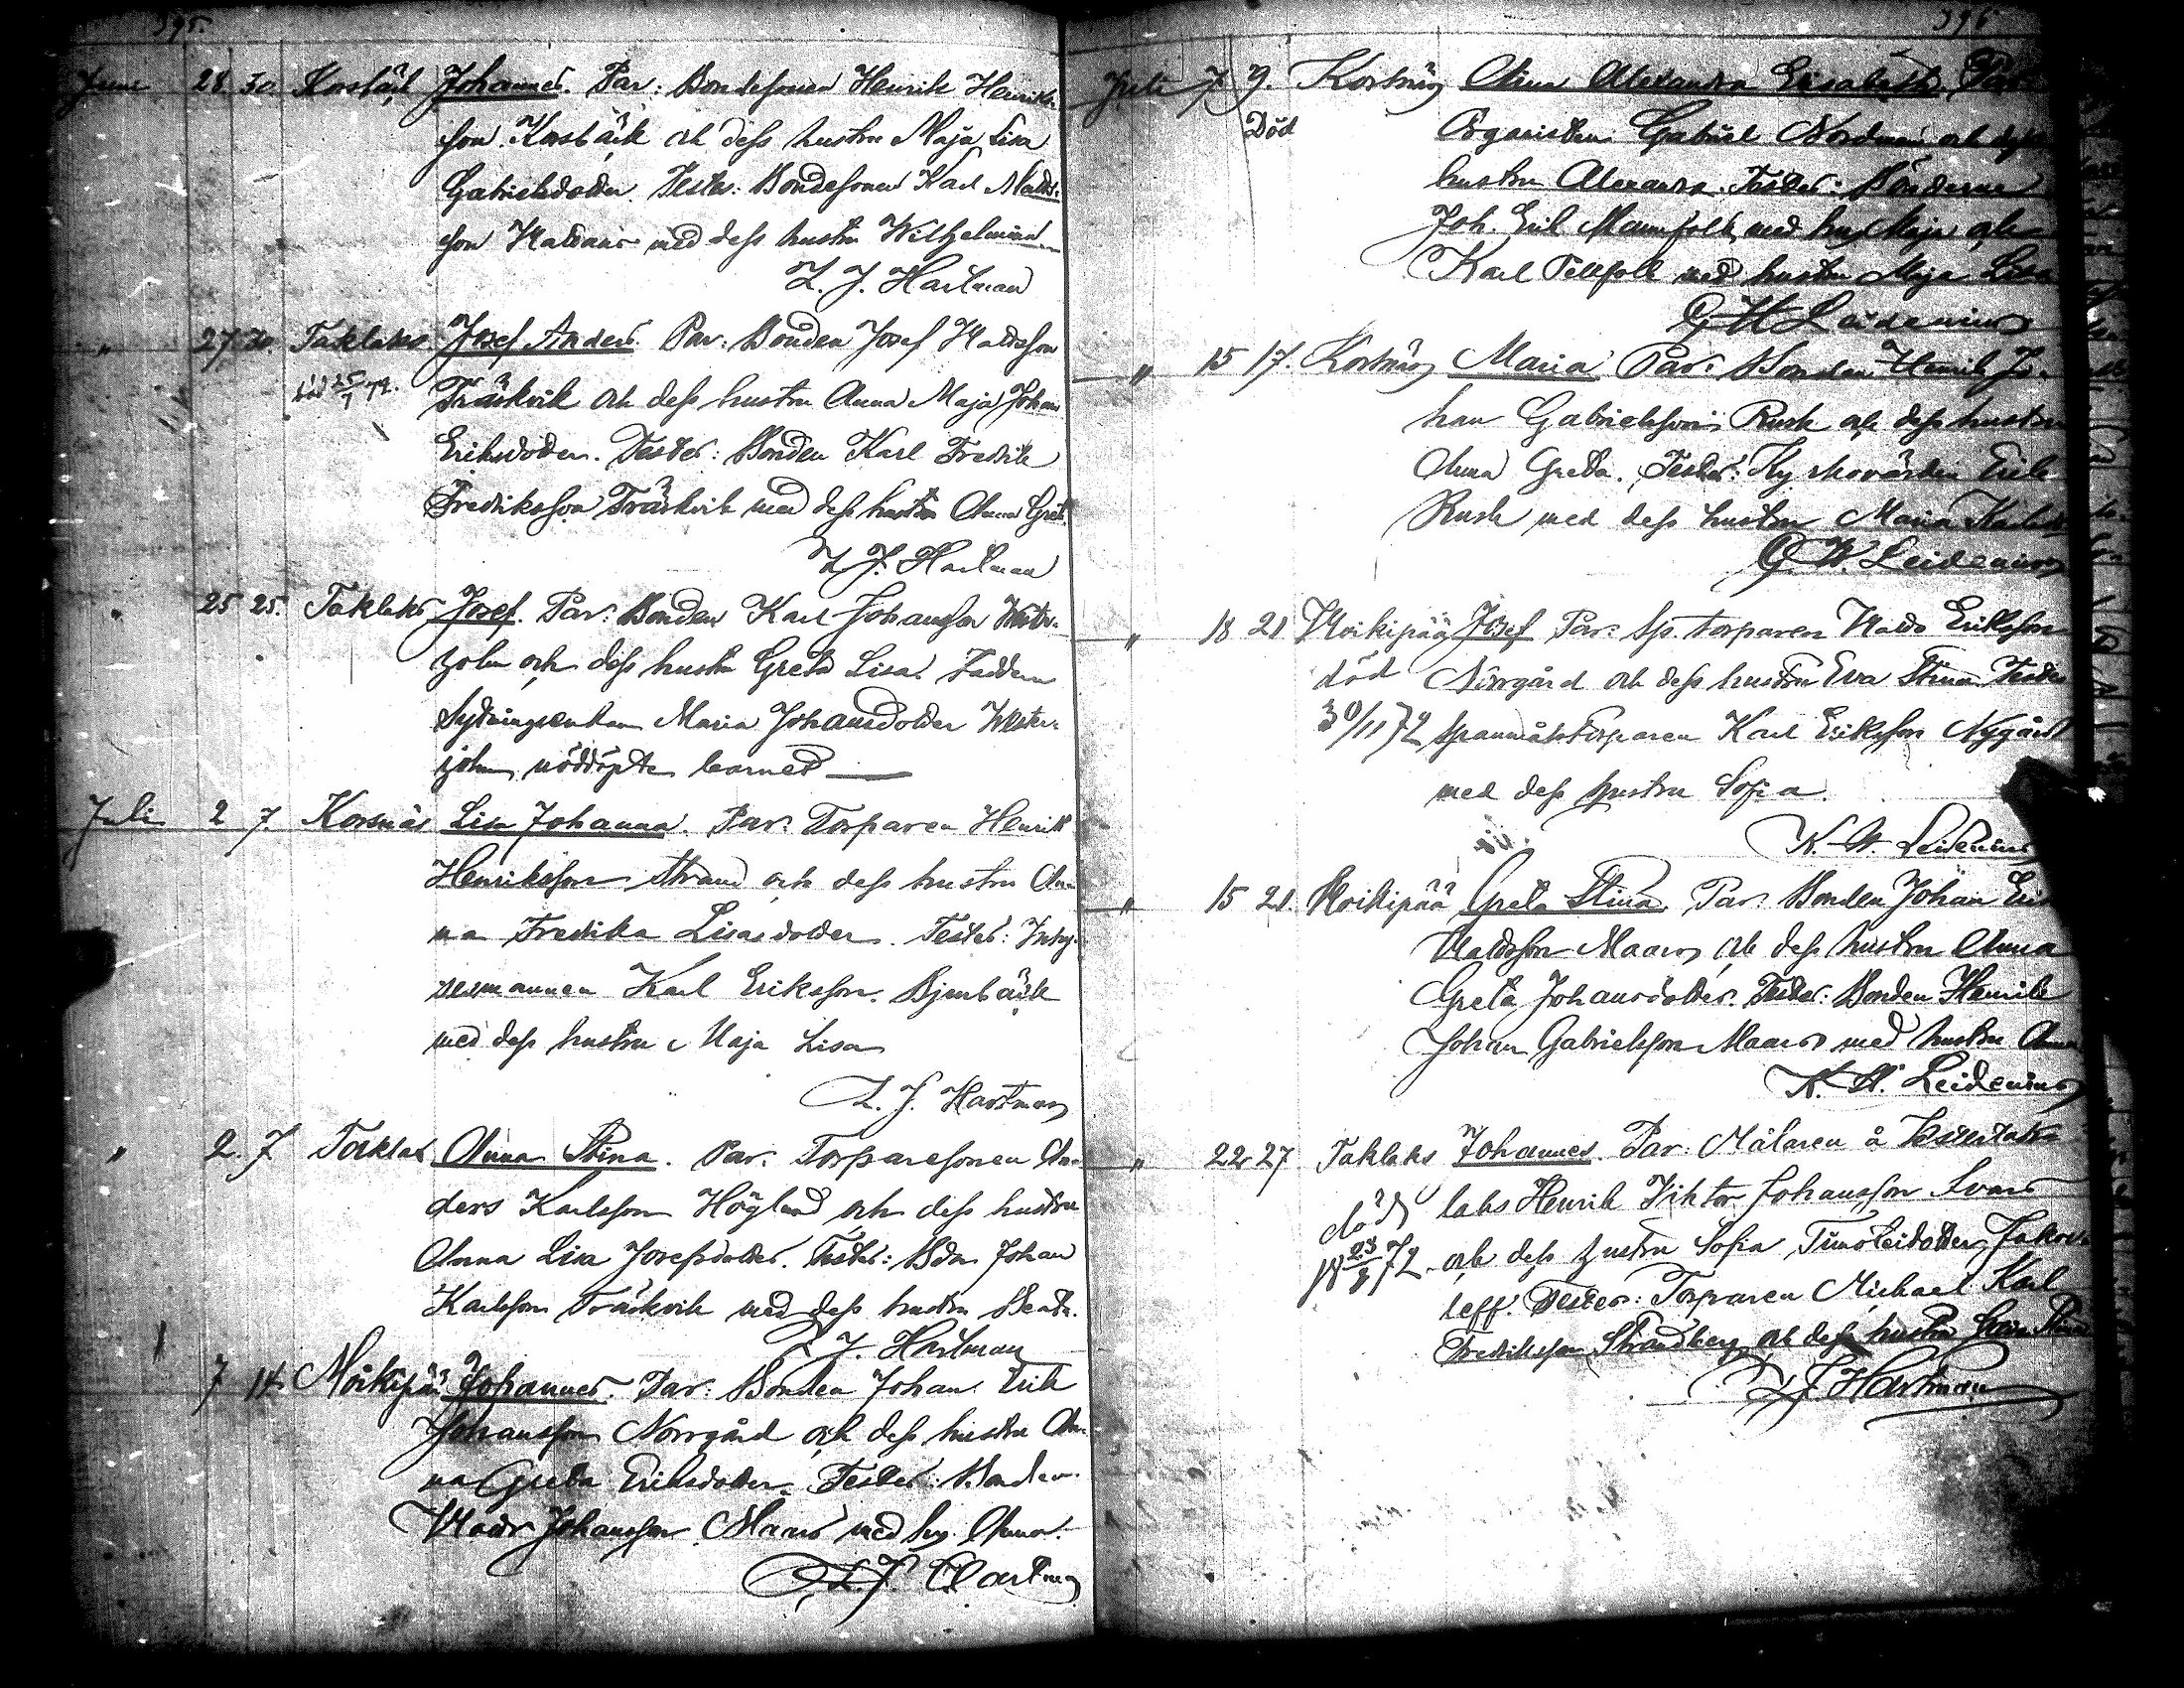 395.
Juni 28 30 Korsbäck Johannes. Par: Bondesonen Henrik Henriks-
son Korsbäck och dess hustru Maja Lisa
Gabrielsdotter. Testes: Bondesonen Karl Matts-
son Mattans med dess hustru Wilhelmina
L. J. Hartman
" 27 30. Taklaks Josef Anders. Par: Bonden Josef Mattsson
död 25/7 72. Träskvik och dess hustru Anna Maja Johan
Eriksdotter. Testes: Bonden Karl Fredrik
Fredriksson Träskvik med dess hustru Anna Greta
L. J. Hartman
" 25 25. Taklaks Josef. Par: Bonden Karl Johansson Wester-
holm och dess hustru Greta Lisa. Faddern
Sytningsenkan Maria Johansdotter Wester-
holm nöddöpte barnet
Juli 2 7. Korsnäs Lisa Johanna. Par: Torparen Henrik
Henriksson Strand och dess hustru An-
na Fredrika Lisasdotter. Testes: Inhy-
sesmannen Karl Eriksson Bjurbäck
med dess hustru Maja Lisa
L. J. Hartman
" 2. 7 Taklax Anna Stina. Par: Torparesonen An-
ders Karlsson Höglund och dess hustru
Anna Lisa Josefsdotter. Testes: Bdn Johan
Karlsson Träskvik med dess hustru Beata.
L. J. Hartman
7 14. Moikipää Johannes. Par: Bonden Johan Erik
Johansson Norrgård och dess hustru An-
na Greta Eriksdotter. Testes: Bonden
Matts Johansson Maars med hu. Anna.
L. J. Hartman
396
Juli 7. 9. Korsnäs Alina Alexandra Elisabeth Par
Död Organisten Gabriel Nordman och dess
hustru Alexandra. Testes: Bönderne
Joh. Erik Mannfolk med hu Maja och
Karl Pellfolk med hustru Maja Lisa
G W Leidenius
" 15 17. Korsnäs Maria Par: Bonden Henrik Jo-
han Gabrielsson Rusk och dess hustru
Anna Greta. Testes: Kyrkovärden Erik
Rusk med dess hustru Maria Karlsd
G. W. Leidenius
" 18 21 Moikipää Josef Par: Sp. torparen Matts Eriksson
död Norrgård och dess hustru Eva Stina. Testes
30/11 72 Spanmålstorparen Karl Eriksson Nygård
med dess hustru Sofia.
K. W. Leidenius
" 15 21. Moikipää Greta Stina. Par: Bonden Johan Erik
Mattsson Maars och dess hustru Anna
Greta Johansdotter. Testes: Bonden Henrik
Johan Gabrielsson Maars med hustru Anna
K. W. Leidenius
" 22 27 Taklaks Johannes. Par: Målaren å
död laks Henrik Viktor Johansson Svans
28/8 72. och dess hustru Sofia Timoteidotter Jakov-
leff. Testes: Torparen Michael Karl
Fredriksson Strandberg och dess hustru Stina
L J Hartman